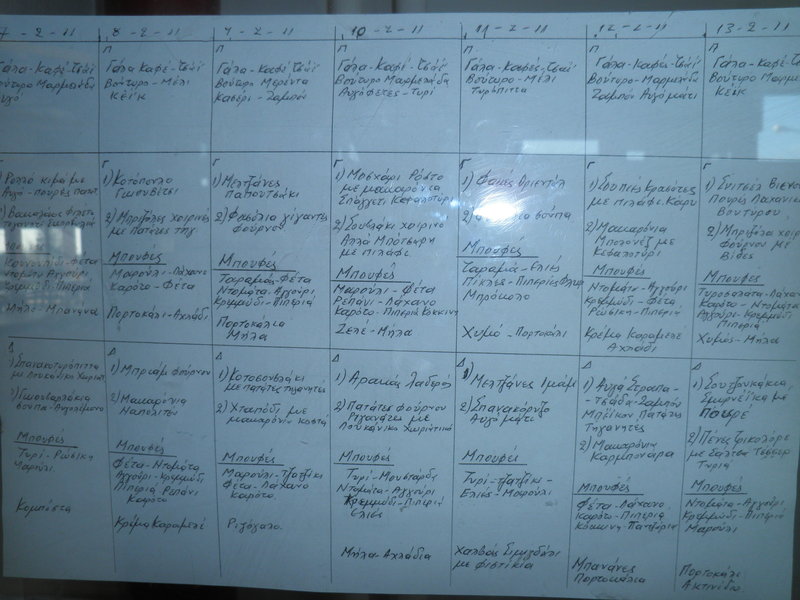 7-2-11
Γάλα-Καφέ-Τσάϊ
Βούτυρο Μαρμελάδα
Αυγό
8-2-11
Π
Γάλα Καφέ-Τσάϊ
Βούτυρο-Μέλι
Κέϊκ
9-2-11
Π
Γάλα-Καφέ Τσάϊ
Βούτυρο Μερέντα
Κασέρι-Ζαμπόν
10-2-11
Π
Γάλα-Καφέ-Τσάϊ
Βούτυρο Μαρμελάδα
Αυγόφετες-Τυρί
11-2-11
Π
Γάλα-Καφές-Τσάϊ
Βούτυρο-Μέλι
Τυρόπιττα
12-2-11
Π
Γάλα-Καφέ-Τσάϊ
Βούτυρο-Μαρμελάδα
Ζαμπόν Αυγό μάτι
13-2-11
Π
Γάλα-Καφέ-Τσ
Βούτυρο Μαρμε
Κέϊκ
Ρολλό κιμά με
Αυγό-πουρές
Μήλο-Μπανάνα
Γ
1) Κοτόπουλο
Γιουβέτσι
2) Μπριζόλες χοιρινές
με Πατάτες τηγ
Μπουφές
Μαρούλι-Λάχανο
Καρότο-Φέτα
Πορτοκάλι-Αχλάδι
Γ
1) Μελτζάνες
Παπουτσάκι
2) Φασόλια γίγαντες
φούρνου
Μπουφές
Ταραμάς-Φέτα
Ντομάτα-Αγγούρι
Κρεμμύδι-Πιπεριά
Πορτοκάλια
Μήλα
Γ
1) Μοσχάρι Ρόστο
με μακαρόνια
Σπαγγέτι Κεφαλοτύρι
2) Σουβλάκι χοιρινό
Αλλά Μπότβαρη
με πιλάφι
Μπουφές
Μαρούλι-Φέτα
Ρεπάνι-Λάχανο
Καρότο-Πιπεριά Κόκκινη
Ζελέ-Μήλα
Γ
1) Φακές
2) σούπα
Μπουφές
Ταραμά-Ελιές
Πίκλες-Πιπεριές
Μπρόκολο
Χυμό-Πορτοκάλι
Γ
1) Σουπιές Κρασάτες
με πιλάφι Κάρυ
2) Μακαρόνια
Μπολονέζ με
Κεφαλοτύρι
Μπουφές
Ντομάτα-Αγγούρι
Κρεμμύδι-Φέτα
Ρώσικη-Πιπεριά
Κρέμα Καραμελέ
Αχλάδι
Γ
1) Σνίτσελ Βιενο
Πουρέ Λαχανικ
Βουτύρου
2) Μπριζόλα χοιρ
φούρνου με
Βίδες
Μπουφές
Τυροσαλάτα-Λάχαν
Καρότο-Ντομάτα
Αγγούρι-Κρεμμύδι
Πιπεριά
Χυμός-Μήλα
Δ
1) Σπανακοτυρόπιττα
με Λουκάνικο Χωριατ
2) Γιουβαρλάκια
σούπα-Αυγολέμονο
Μπουφές
Τυρί-Ρώσικη
Μαρούλι
Κομπόστα
Δ
1) Μπριάμ φούρνου
2) Μακαρόνια
Ναπολιτέν
Μπουφές
Φέτα-Ντομάτα
Αγγούρι-Κρεμμύδι
Πιπεριά Ρεπάνι
Καρότο
Κρέμα Καραμελέ
Δ
1) Κοτοσουβλάκι
με πατάτες τηγανητές
2) Χταπόδι με
μακαρόνι κοφτό
Μπουφές
Μαρούλι-Τζατζίκι
Φέτα-Λάχανο
Καρότο
Ρυζόγαλο
Δ
1) Αρακάς Λαδερός
2) Πατάτες φούρνου
Ριγανάτες με
Λουκάνικο Χωριάτικο
Μπουφές
Τυρί-Μουστάρδα
Ντομάτα-Αγγούρι
Κρεμμύδι-Πιπεριά
Ελιές
Μήλα-Αχλάδια
Δ
1) Μελτζάνες Ιμάμ
2) Σπανακόρυζο
Αυγό μάτι
Μπουφές
Τυρί-Τζατζίκι-
Ελιές-Μαρούλι
Χαλβάς Σιμιγδάλι
με φιστίκια
Δ
1) Αυγά Στραπα-
τσάδα-Ζαμπόν
Μπέϊκον Πατάτες
Τηγανητές
2) Μακαρόνια
Καρμπονάρα
Μπουφές
Φέτα-Λάχανο
Καρότο-Πιπεριά
Κόκκινη-Παντζάρια
Μπανάνες
Πορτοκάλια
Δ
1) Σουτζουκάκια
Σμυρνέϊκα με
Πουρέ
2) Πένες τρικολόρε
με Σάλτσα Τέσσερ
Τυριά
Μπουφές
Ντομάτα-Αγγούρι
Κρεμμύδι-Πιπεριά
Μαρούλι
Πορτοκάλι
Ακτινίδιο